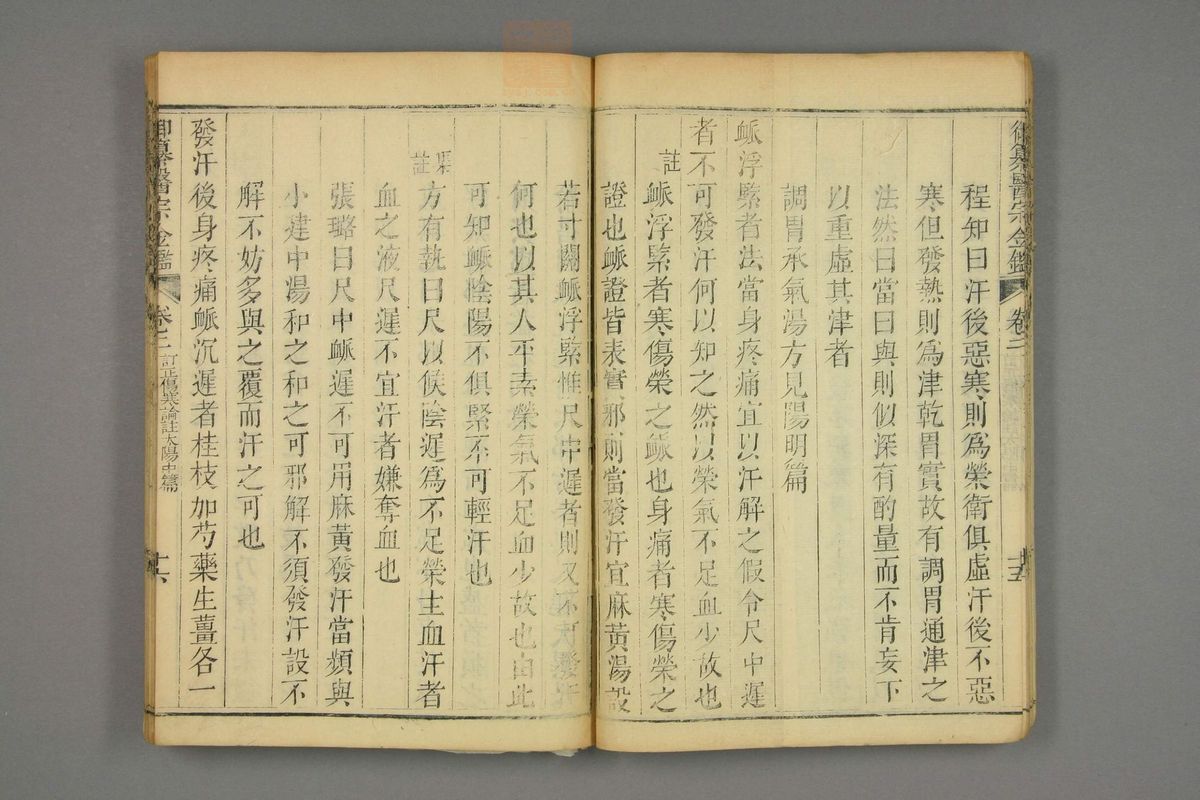 御纂醫宗金鑑 卷二 十五
程知曰汗後惡寒則爲榮衛俱虛汗後不惡
寒但發熱則爲津乾胃實故有調胃通津之
法然曰當曰與則似深有酌量而不肯妄下
以重虛其津者
調胃承氣湯方見陽明篇
脈浮緊者法當身疼痛宜以汗解之假令尺中遲
者不可發汗何以知之然以榮氣不足血少故也
註 脈浮緊者寒傷榮之脈也身痛者寒傷榮之
證也脈證皆表實邪則當發汗宜麻黃湯設
若寸關脈浮緊惟尺中遲者則又不可發汗
何也以其人平素榮氣不足血少故也由此
可知脈陰陽不俱緊不可輕汗也
集註 方有執曰尺以候陰遲爲不足榮主血汗者
血之液尺遲不宜汗者嫌奪血也
張璐曰尺中脈遲不可用麻黃發汗當頻與
小建中湯和之和之可邪解不須發汗設不
解不妨多與之覆而汗之可也
發汗後身疼痛脈沉遲者桂枝加芍藥生薑各一
御纂醫宗金鑑 卷二 訂正傷寒論註太陽中篇 十六